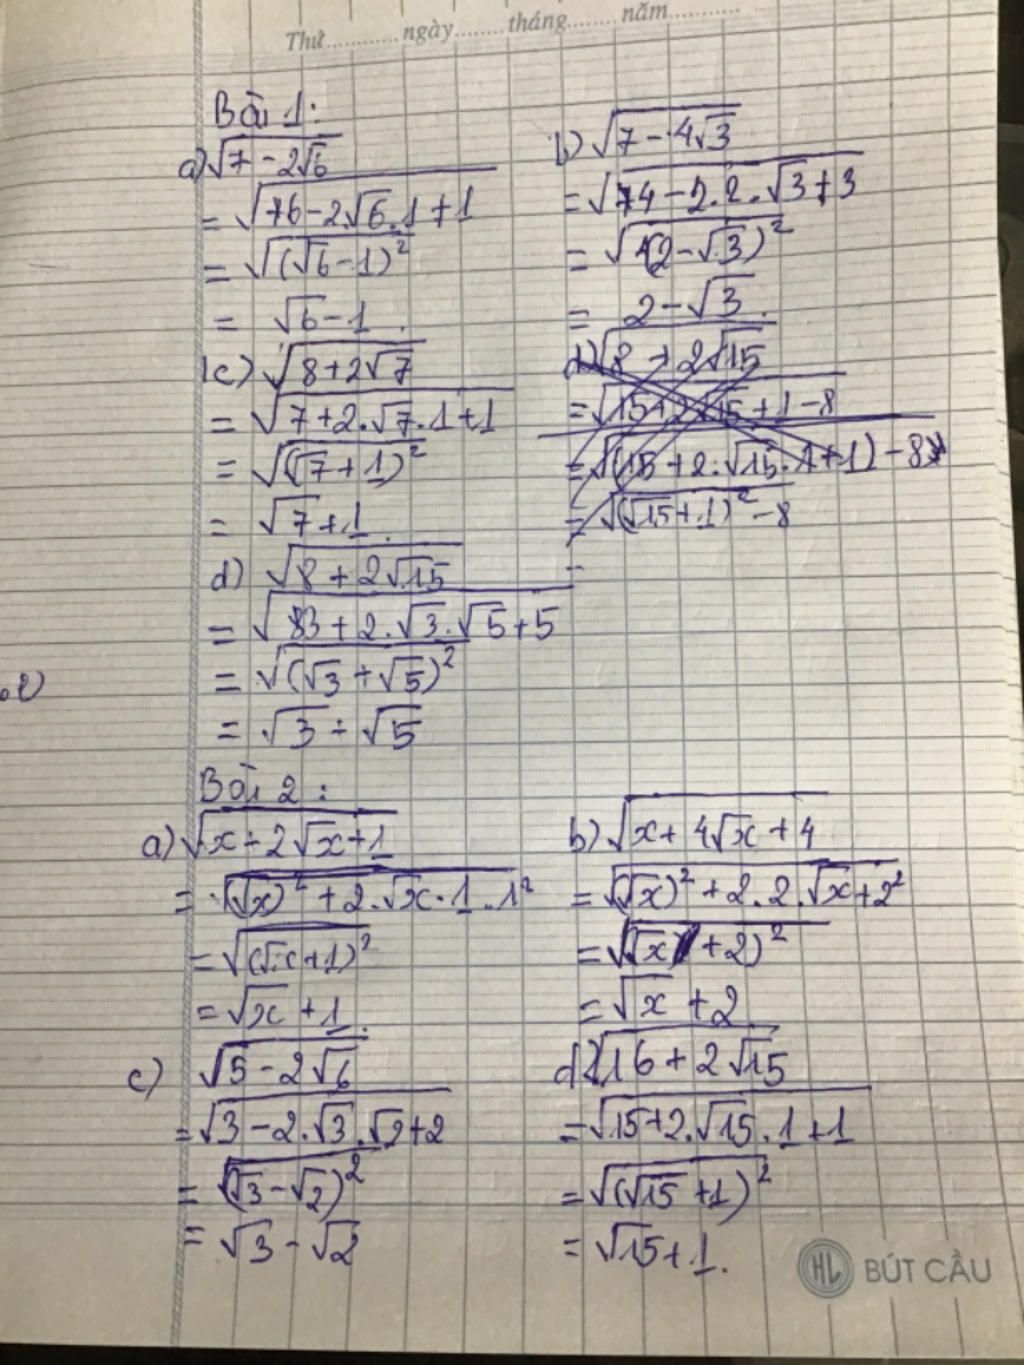 Thứ............ngày........tháng........năm............
Bài 1:
a) √(7 - 2√6)
= √(6 - 2.√6.1 + 1)
= √((√6 - 1)²)
= √6 - 1.
b) √(7 - 4√3)
= √(4 - 2.2.√3 + 3)
= √((2 - √3)²)
= 2 - √3.
c) √(8 + 2√7)
= √(7 + 2.√7.1 + 1)
= √((√7 + 1)²)
= √7 + 1.
d) √(8 + 2√15)
= √(15 + 2√15 + 1 - 8
= √((15 + 2.√15.1 + 1) - 8
= √((√15 + 1)² - 8
=
d) √(8 + 2√15)
= √(3 + 2.√3.√5 + 5)
= √((√3 + √5)²)
= √3 + √5
Bài 2:
a) √(x + 2√x + 1)
= √((√x)² + 2.√x.1.1²
= √((√x + 1)²)
= √x + 1.
b) √(x + 4√x + 4)
= √((√x)² + 2.2.√x + 2²)
= √((√x + 2)²)
= √x + 2
c) √(5 - 2√6)
= √(3 - 2.√3.√2 + 2)
= √((√3 - √2)²)
= √3 - √2
d) √(16 + 2√15)
= √(15 + 2.√15.1 + 1)
= √((√15 + 1)²)
= √15 + 1.
HL BÚT CẦU